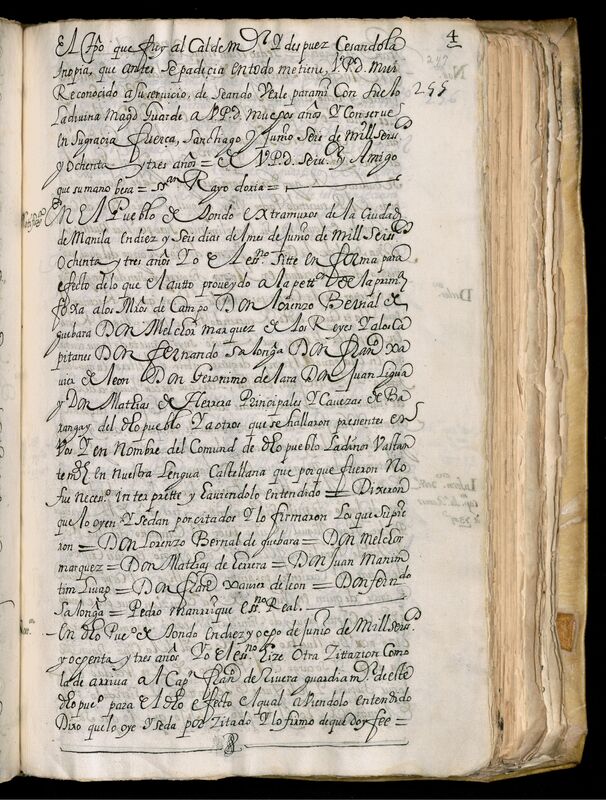 4
255
El tpō que fuy alCalde mor. Y despuez Cesando la
Ynopia, que antes se padecia en todo me tiene, V.P.d. mui
Reconocido a su servicio, de seando Verle para mi Con fuelo
La divina Magd Guarde a V.P.d. muchos años Y Conserve
en su gracia fuerca, Sanctiago Y Junio Seis de mill seiscos
y Ochenta y tres años = de V.P.d. Seruor. y Amigo
que su mano besa = Rayo doria =
En El Pueblo de tondo extramuros de la Ciudad
de Manila en diez y Seis dias de l mes de Junio de mill Seiscos
Ochenta y tres años Yo el essno. Sitte en forma para
efecto de lo que el autto proveydo a la pettn. de la prima
foxa a los Mros de Campo Don Lorenzo Bernal de
guebara Don Melchor marquez de los Reyes Y a los Ca
pitanes Don fernando Salonga Don frano xa
uier de leon Don Geronimo de lara Don Juan Ligua
y Don Mathias de Herrera Principales Y Cauezas de Ba
rangay del dho pueblo Y a otros que se hallaron presentes en
Vos Y en Nombre del Comund de dho pueblo Ladinos Vastan
temte En nuestra Lengua Castellana que porque fueron No
fue Neceso. Interprette y haviendolo entendido = Dixeron
que lo oyen Y se dan por citados Y lo firmaron Los que supie
ron = Don Lorenzo Bernal de guebara = Don Melchor
marquez = Don Mathias de Herrera = Don Juan Manim
tim = Don frano xavier de leon = Don ferndo
Salonga = Pedro Manrrique essno Real.
En dho Pueo de tondo en diez y ocho de Junio de Mill seiscos.
y ochenta y tres años Yo el esno. hize Otra Zittazion Como
la de arriva al Capn fran de rivera guardia mor. de este
dho pueo para el dho efecto el qual aviendolo entendido
Dixo que lo oye Y se da por Zitado Y lo firmo de que doy fee =